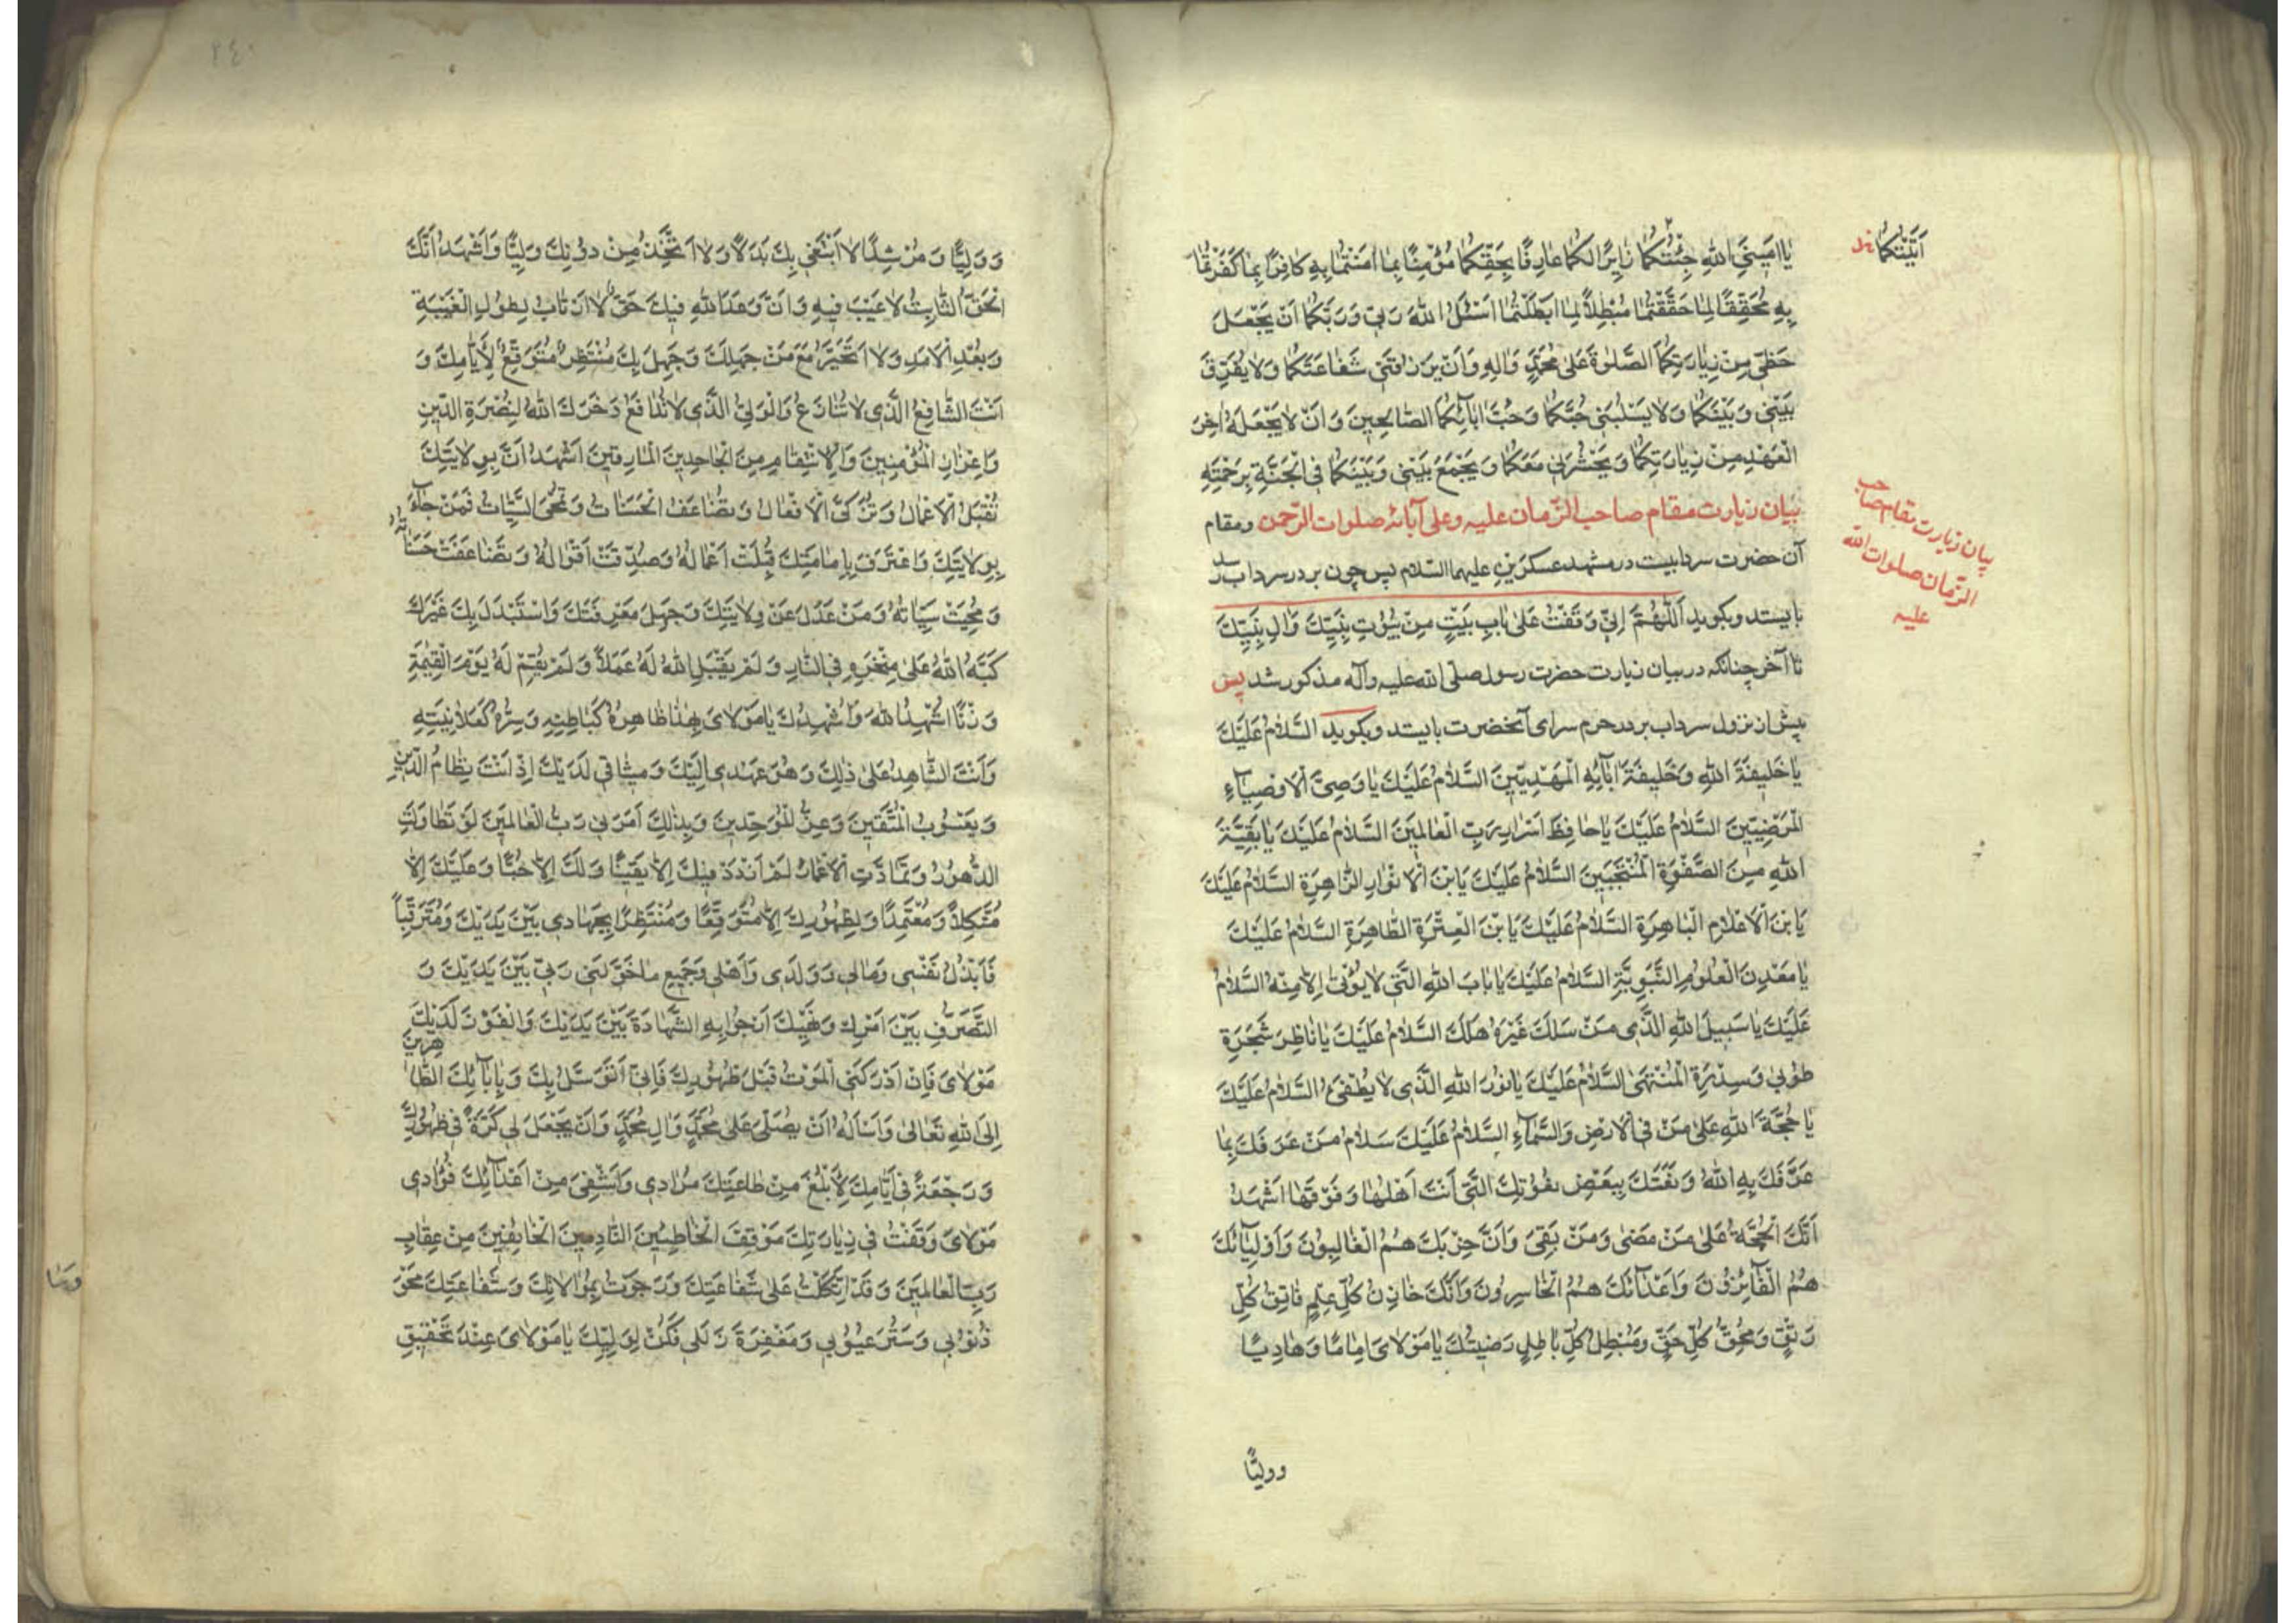 اَتَيْتُكُما خد
يٰا اَميٖنَيِ اللهِ جِئْتُكُما زٰايِرًا لَكُما عٰارِفًا بِحَقِّكُما مُؤْمِنًا بِما اٰمَنْتُما بِهِ كافِرًا بِما كَفَرْتُما
بِهِ مُحَقِّقًا لِما حَقَّقْتُما مُبْطِلاً لِما اَبْطَلْتُما اَسْئَلُ اللهَ رَبّي وَرَبَّكُما اَنْ يَجْعَلَ
حَظّي مِنْ زِيارَتِكُما الصَّلوٰةَ عَلىٰ مُحَمَّدٍ وَاٰلِهِ وَاَنْ يَرْزُقَني شَفاعَتَكُما وَلا يُفَرِّقَ
بَيْني وَبَيْنَكُما وَلا يَسْلُبَني حُبَّكُما وَحُبَّ اٰبائِكُما الصّالِحينَ وَاَنْ لا يَجْعَلَهُ اٰخِرَ
الْعَهْدِ مِنْ زِيارَتِكُما وَيَحْشُرَني مَعَكُما وَيَجْمَعَ بَيْني وَبَيْنَكُما فِي الْجَنَّةِ بِرَحْمَتِهِ
بيان زيارت مقام صاحب الزّمان عليه وعلى آبائه صلوات الرّحمن ومقام
بيان زيارت مقام صاحب
الزّمان صلوات الله
عليه
آن حضرت سردابيست در مشهد عسكريّين عليهما السّلام پس چون بر در سرداب رسد
بايستد وبگويد اَللّٰهُمَّ اِنّي وَقَفْتُ عَلىٰ بابِ بَيْتٍ مِنْ بُيُوتِ نَبِيِّكَ وَاٰلِ نَبِيِّكَ
تا آخر چنانكه در بيان زيارت حضرت رسول صلّى الله عليه وآله مذكور شد پس
پيش از نزول سرداب بر در حرم سراى آنحضرت بايستد وبگويد السَّلامُ عَلَيْكَ
يا خَليفَةَ اللهِ وَخَليفَةَ اٰبائِهِ الْمَهْدِيّينَ السَّلامُ عَلَيْكَ يا وَصِيَّ الْاَوْصِياءِ
الْمَرْضِيّينَ السَّلامُ عَلَيْكَ يا حافِظَ اَسْرارِ رَبِّ الْعالَمينَ السَّلامُ عَلَيْكَ يا بَقِيَّةَ
اللهِ مِنَ الصَّفْوَةِ الْمُنْتَجَبينَ السَّلامُ عَلَيْكَ يَابْنَ الْاَنْوارِ الزّاهِرَةِ السَّلامُ عَلَيْكَ
يَابْنَ الْاَعْلامِ الْباهِرَةِ السَّلامُ عَلَيْكَ يَابْنَ الْعِتْرَةِ الطّاهِرَةِ السَّلامُ عَلَيْكَ
يا مَعْدِنَ الْعُلُومِ النَّبَوِيَّةِ السَّلامُ عَلَيْكَ يا بابَ اللهِ الَّتي لا يُؤْتىٰ اِلّا مِنْهُ السَّلامُ
عَلَيْكَ يا سَبيلَ اللهِ الَّذي مَنْ سَلَكَ غَيْرَهُ هَلَكَ السَّلامُ عَلَيْكَ يا ناظِرَ شَجَرَةِ
طُوبىٰ وَسِدْرَةِ الْمُنْتَهىٰ السَّلامُ عَلَيْكَ يا نُورَ اللهِ الَّذي لا يُطْفىٰ السَّلامُ عَلَيْكَ
يا حُجَّةَ اللهِ عَلىٰ مَنْ فِي الْاَرْضِ وَالسَّماءِ السَّلامُ عَلَيْكَ سَلامَ مَنْ عَرَفَكَ بِما
عَرَّفَكَ بِهِ اللهُ وَنَعَتَكَ بِبَعْضِ نُعُوتِكَ الَّتي اَنْتَ اَهْلُها وَفَوْقَها اَشْهَدُ
اَنَّكَ الْحُجَّةُ عَلىٰ مَنْ مَضىٰ وَمَنْ بَقِيَ وَاَنَّ حِزْبَكَ هُمُ الْغالِبُونَ وَاَوْلِيائَكَ
هُمُ الْفائِزُونَ وَاَعْدائَكَ هُمُ الْخاسِرُونَ وَاَنَّكَ خازِنُ كُلِّ عِلْمٍ فاتِقُ كُلِّ
رَتْقٍ وَمُحِقُّ كُلِّ حَقٍّ وَمُبْطِلُ كُلِّ باطِلٍ رَضيتُكَ يا مَوْلايَ اِمامًا وَهادِيًا
ووليًّا
٢٤٠
وَوَلِيًّا وَمُرْشِدًا لا اَبْتَغي بِكَ بَدَلاً وَلا اَتَّخِذُ مِنْ دُونِكَ وَلِيًّا وَاَشْهَدُ اَنَّكَ
الْحَقُّ الثّابِتُ لا عَيْبَ فيهِ وَاَنَّ وَعْدَ اللهِ فيكَ حَقٌّ لا اَرْتابُ لِطُولِ الْغَيْبَةِ
وَبُعْدِ الْاَمَدِ وَلا اَتَحَيَّرُ مَعَ مَنْ جَهِلَكَ وَجَهِلَ بِكَ مُنْتَظِرٌ مُتَوَقِّعٌ لِاَيّامِكَ وَ
اَنْتَ الشّافِعُ الَّذي لا تُنازَعُ وَالْوَلِيُّ الَّذي لا تُدافَعُ ذَخَرَكَ اللهُ لِنُصْرَةِ الدّينِ
وَاِعْزازِ الْمُؤْمِنينَ وَالْاِنْتِقامِ مِنَ الْجاحِدينَ الْمارِقينَ اَشْهَدُ اَنَّ بِوِلايَتِكَ
تُقْبَلُ الْاَعْمالُ وَتُزَكَّى الْاَفْعالُ وَتُضاعَفُ الْحَسَناتُ وَتُمْحَى السَّيِّئاتُ فَمَنْ جاءَ
بِوِلايَتِكَ وَاعْتَرَفَ بِاِمامَتِكَ قُبِلَتْ اَعْمالُهُ وَصُدِّقَتْ اَقْوالُهُ وَتَضاعَفَتْ حَسَناتُهُ
وَمُحِيَتْ سَيِّئاتُهُ وَمَنْ عَدَلَ عَنْ وِلايَتِكَ وَجَهِلَ مَعْرِفَتَكَ وَاسْتَبْدَلَ بِكَ غَيْرَكَ
كَبَّهُ اللهُ عَلىٰ مِنْخَرِهِ فِي النّارِ وَلَمْ يَقْبَلِ اللهُ لَهُ عَمَلاً وَلَمْ يُقِمْ لَهُ يَوْمَ الْقِيٰمَةِ
وَزْنًا اُشْهِدُ اللهَ وَاُشْهِدُكَ يا مَوْلايَ بِهٰذا ظاهِرُهُ كَباطِنِهِ وَسِرُّهُ كَعَلانِيَتِهِ
وَاَنْتَ الشّاهِدُ عَلىٰ ذٰلِكَ وَهُوَ عَهْدي اِلَيْكَ وَميثاقي لَدَيْكَ اِذْ اَنْتَ نِظامُ الدّينِ
وَيَعْسُوبُ الْمُتَّقينَ وَعِزُّ الْمُوَحِّدينَ وَبِذٰلِكَ اَمَرَني رَبُّ الْعالَمينَ لَوْ تَطاوَلَتِ
الدُّهُورُ وَتَمادَّتِ الْاَعْمارُ لَمْ اَزْدَدْ فيكَ اِلّا يَقينًا وَلَكَ اِلّا حُبًّا وَعَلَيْكَ اِلّا
مُتَّكِلاً وَمُعْتَمِدًا وَلِظُهُورِكَ اِلّا مُتَوَقِّعًا وَمُنْتَظِرًا بِجِهادي بَيْنَ يَدَيْكَ وَمُتَرَقِّبًا
فَاَبْذُلُ نَفْسي وَمالي وَوَلَدي وَاَهْلي وَجَميعَ ما خَوَّلَني رَبّي بَيْنَ يَدَيْكَ وَ
التَّصَرُّفِ بَيْنَ اَمْرِكَ وَنَهْيِكَ اَرْجُوا بِهِ الشَّهادَةَ بَيْنَ يَدَيْكَ وَالْفَوْزَ لَدَيْكَ
مَوْلايَ فَاِنْ اَدْرَكَنِي الْمَوْتُ قَبْلَ ظُهُورِكَ فَاِنّي اَتَوَسَّلُ بِكَ وَبِاٰبائِكَ الطّاهِرينَ
اِلَى اللهِ تَعالىٰ وَاَسْاَلُهُ اَنْ يُصَلِّيَ عَلىٰ مُحَمَّدٍ وَاٰلِ مُحَمَّدٍ وَاَنْ يَجْعَلَ لي كَرَّةً في ظُهُورِكَ
وَرَجْعَةً في اَيّامِكَ لِاَبْلُغَ مِنْ طاعَتِكَ مُرادي وَاَشْفِيَ مِنْ اَعْدائِكَ فُؤادي
مَوْلايَ وَقَفْتُ في زِيارَتِكَ مَوْقِفَ الْخاطِئينَ النّادِمينَ الْخائِفينَ مِنْ عِقابِ
رَبِّ الْعالَمينَ وَقَدِ اتَّكَلْتُ عَلىٰ شَفاعَتِكَ وَرَجَوْتُ بِمُوالاتِكَ وَشَفاعَتِكَ مَحْوَ
ذُنُوبي وَسَتْرَ عُيُوبي وَمَغْفِرَةَ زَلَلي فَكُنْ لِوَلِيِّكَ يا مَوْلايَ عِنْدَ تَحْقيقِ